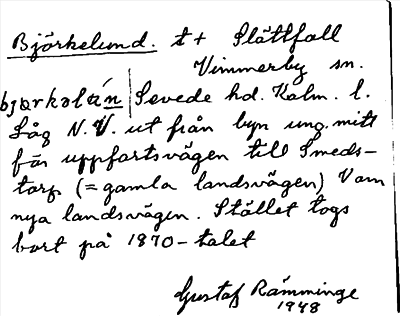 Björkelund. t + Slättfall
Vimmerby sn.
Sevede hd. Kalm. l.
Låg N.V. ut från byn ung. mitt
för uppfartsvägen till Smeds-
torp (= gamla landsvägen) Vam
nya landsvägen. Stället togs
bort på 1870-talet
Gustaf Rämminge
1948